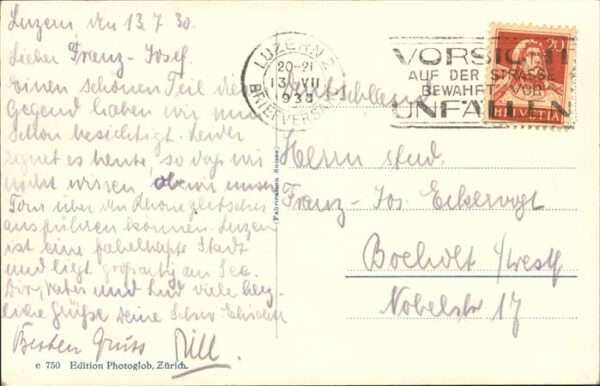 Luzern, den 13.7.30.
Lieber Franz-Josef.
Einen schönen Teil der
Gegend haben wir nun
schon besichtigt. Leider
regnet es heute, so dass wir
nicht wissen, ob wir unsere
Tour über den Rhonegletscher
ausführen können. Luzern
ist eine fabelhafte Stadt
und liegt großartig am See.
Dir, Vater und viele herz-
liche Grüße Deine
Besten Gruss Will.
e 750 Edition Photoglob, Zürich.
(Fabrication Suisse)
LUZERN 2
20-21
13 VII
BRIEFVERSAND
VORSICHT
AUF DER STRASSE
BEWAHRT VOR
UNFÄLLEN
20
HELVETIA
Deutschland
Herrn stud.
Franz-Jos. Eckervogt
Bocholt i/Westf
Nobelstr 17